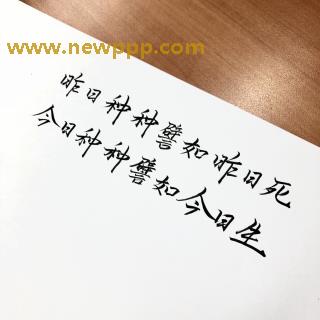 www.newppp.com
昨日种种譬如昨日死
今日种种譬如今日生